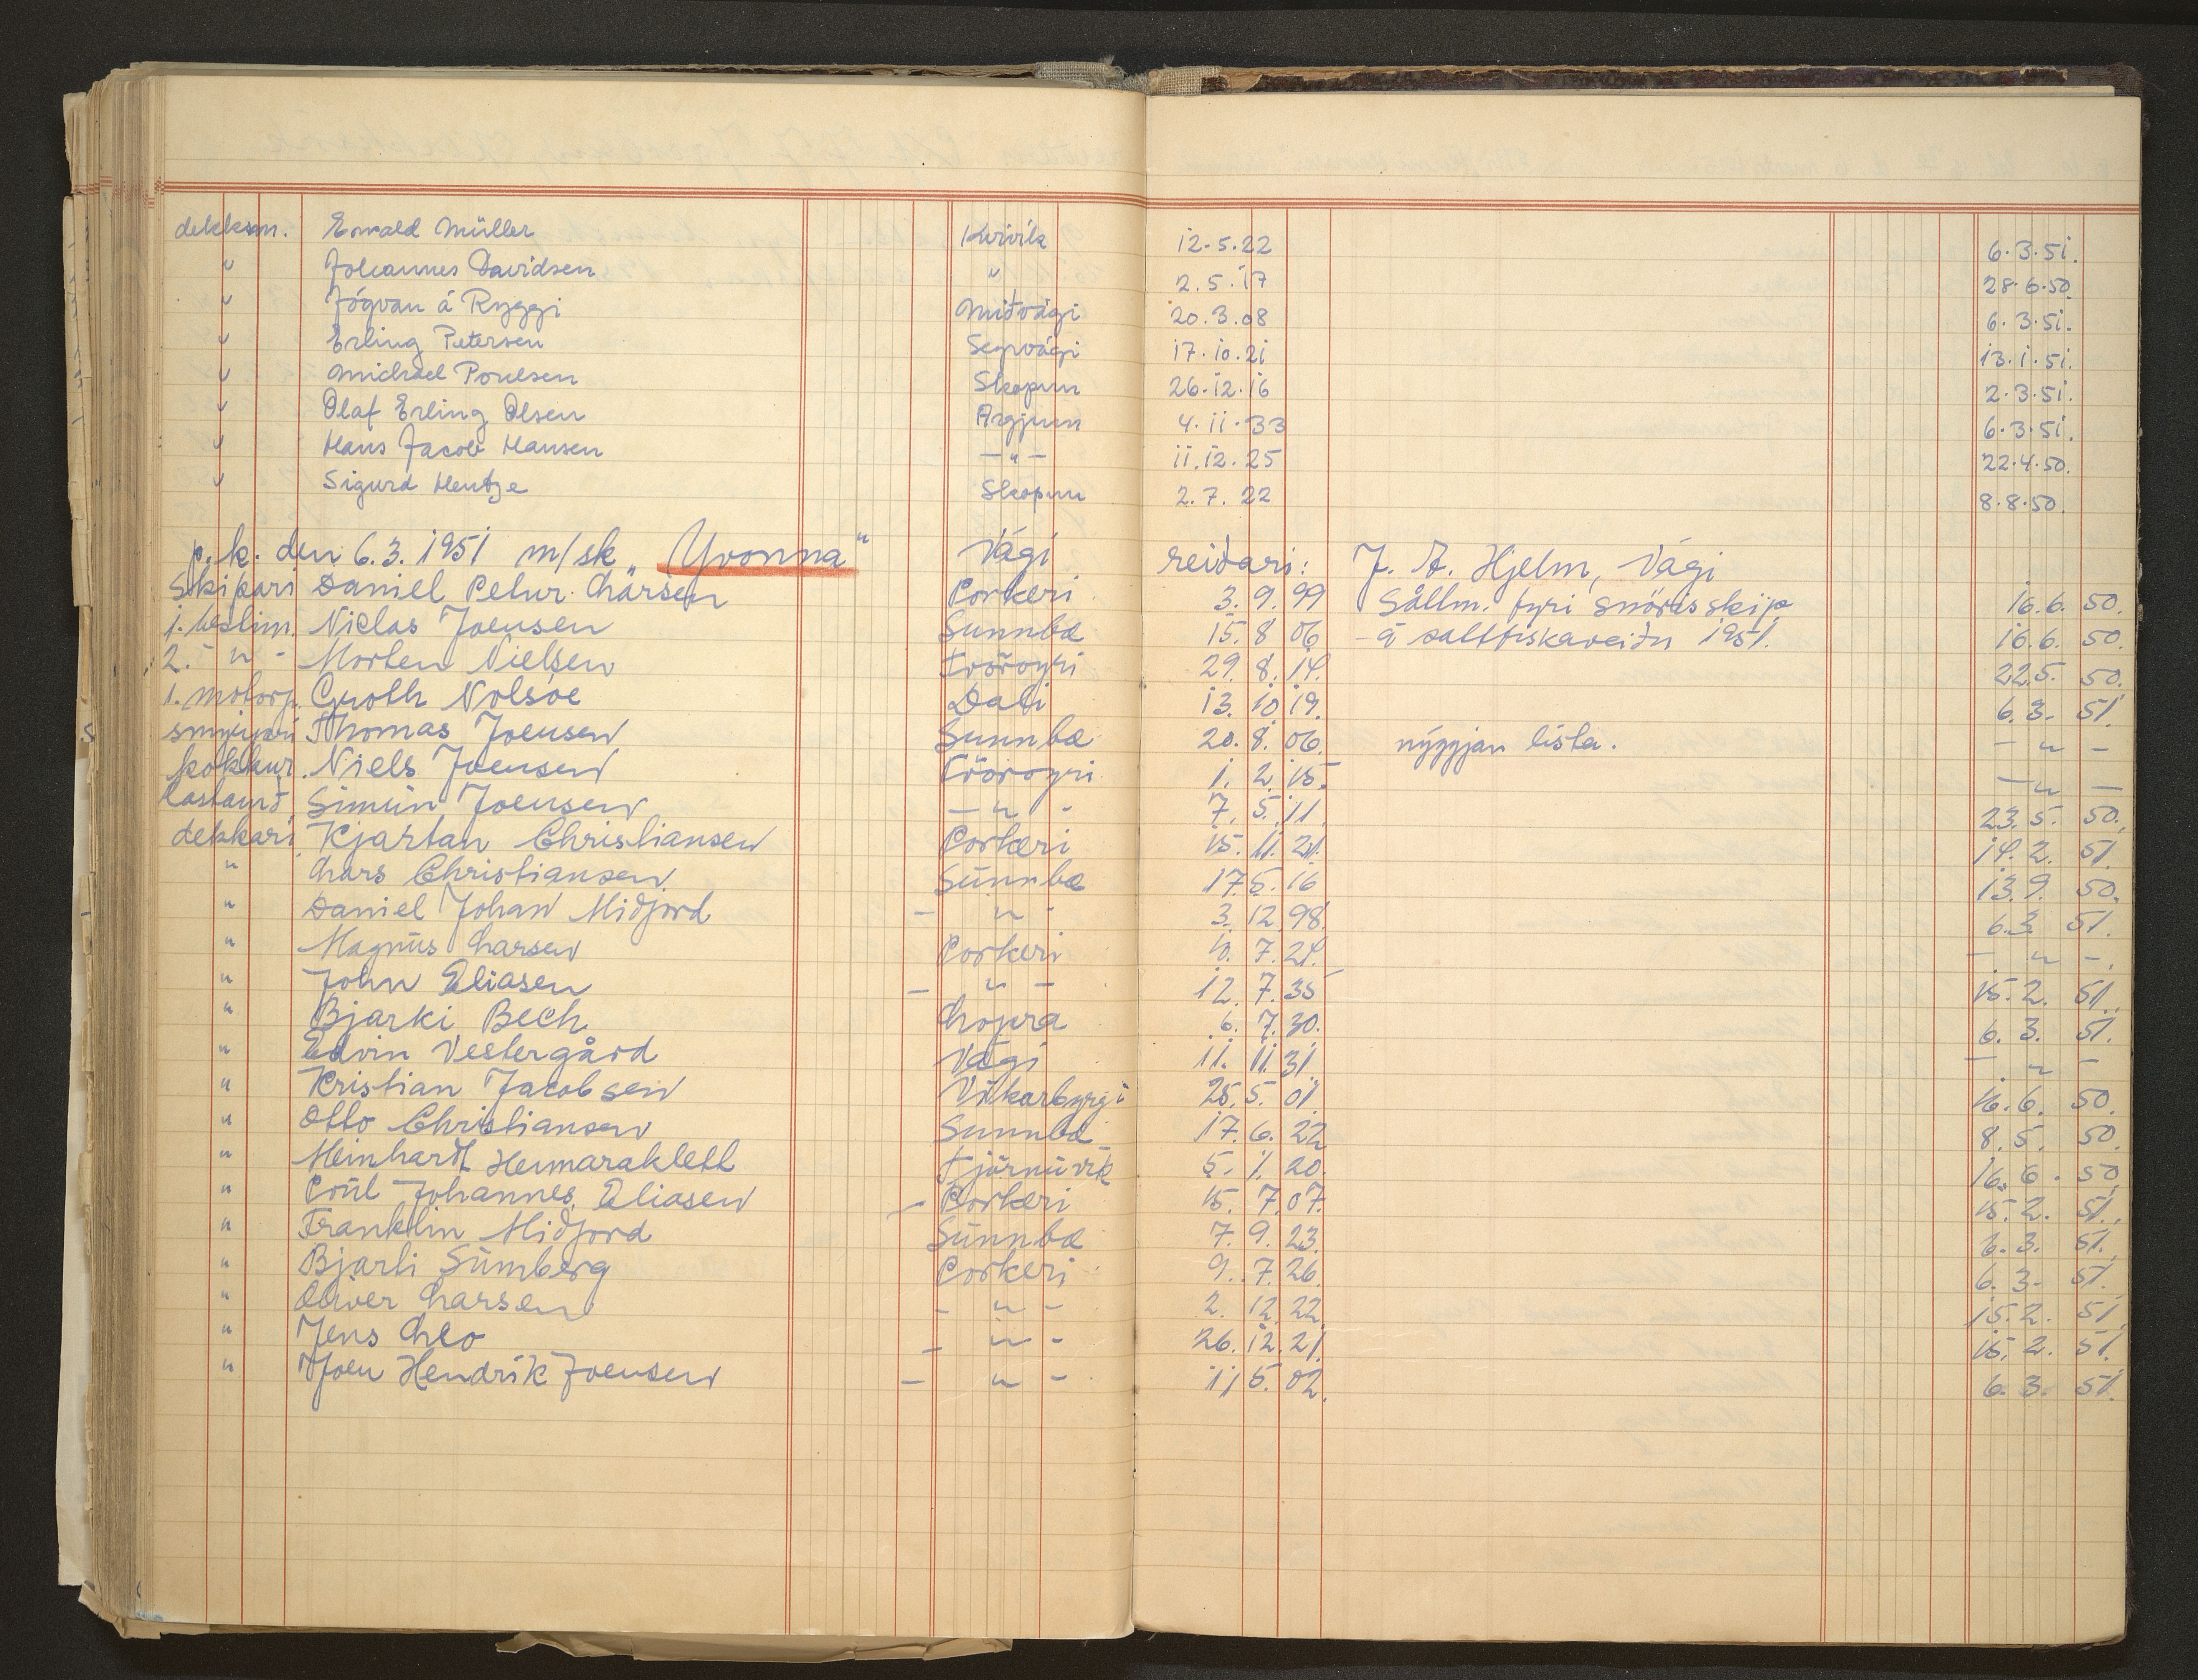 dekksm. Ewald Müller Kvívík 12.5.22 6.3.51.
" Johannes Davidsen " 2.5.17 28.6.50.
" Jógvan á Ryggi Miðvági 20.3.08 6.3.51.
" Erling Petersen Sørvági 17.10.21 13.1.51.
" Michael Poulsen Skopun 26.12.16 2.3.51.
" Olaf Erling Olsen Argjum 4.11.33 6.3.51.
" Hans Jacob Hansen -"- 11.12.25 22.4.50.
" Sigurd Hentze Skopun 2.7.22 8.8.50.
p.k. den 6.3.1951 m/sk „Yvonna" Vági reiðari: J. A. Hjelm, Vági
Skipari Daniel Petur Larsen Porkeri 3.9.99 Sáttm. fyri snørisskip 16.6.50.
1. bestim. Niclas Joensen Sunnbø 15.8.06 á saltfiskaveiðu 1951. 16.6.50.
2. -"- Morten Nielsen Tvöroyri 29.8.14. 22.5.50.
1. motorp. Groth Nolsöe Dali 13.10.19. 6.3.51.
smyrjari Thomas Joensen Sunnbø 20.8.06. nýggjan lista. -"-
kokkur. Niels Joensen Tvöroyri 1.2.15. -"-
Simun Joensen -"- 7.5.11. 23.5.50.
dekkari Kjartan Christiansen Porkeri 15.11.21. 14.2.51.
" Lars Christiansen Sunnbø 17.5.16 13.9.50.
" Daniel Johan Miðjord -"- 3.12.98. 6.3.51.
" Magnus Larsen Porkeri 10.7.24. -"-.
" John Eliasen -"- 12.7.35 15.2.51.
" Bjarki Bech Lopra 6.7.30. 6.3.51.
" Edvin Vestergård Vági 11.11.31. -"-
" Kristian Jacobsen Víkarbyrgi 25.5.01. 16.6.50.
" Otto Christiansen Sunnbø 17.6.22 8.5.50.
" Meinhardt Heimaraklett Tjörnuvík 5.1.20. 16.6.50.
" Poul Johannes Eliasen Porkeri 15.7.07. 15.2.51.
" Franklin Miðjord Sunnbø 7.9.23. 6.3.51.
" Bjarli Sumberg Porkeri 9.7.26. 6.3.51.
" Oliver Larsen -"- 2.12.22. 15.2.51.
" Jens Leo -"- 26.12.21. 15.2.51.
" Joen Hendrik Joensen -"- 11.5.02. 6.3.51.